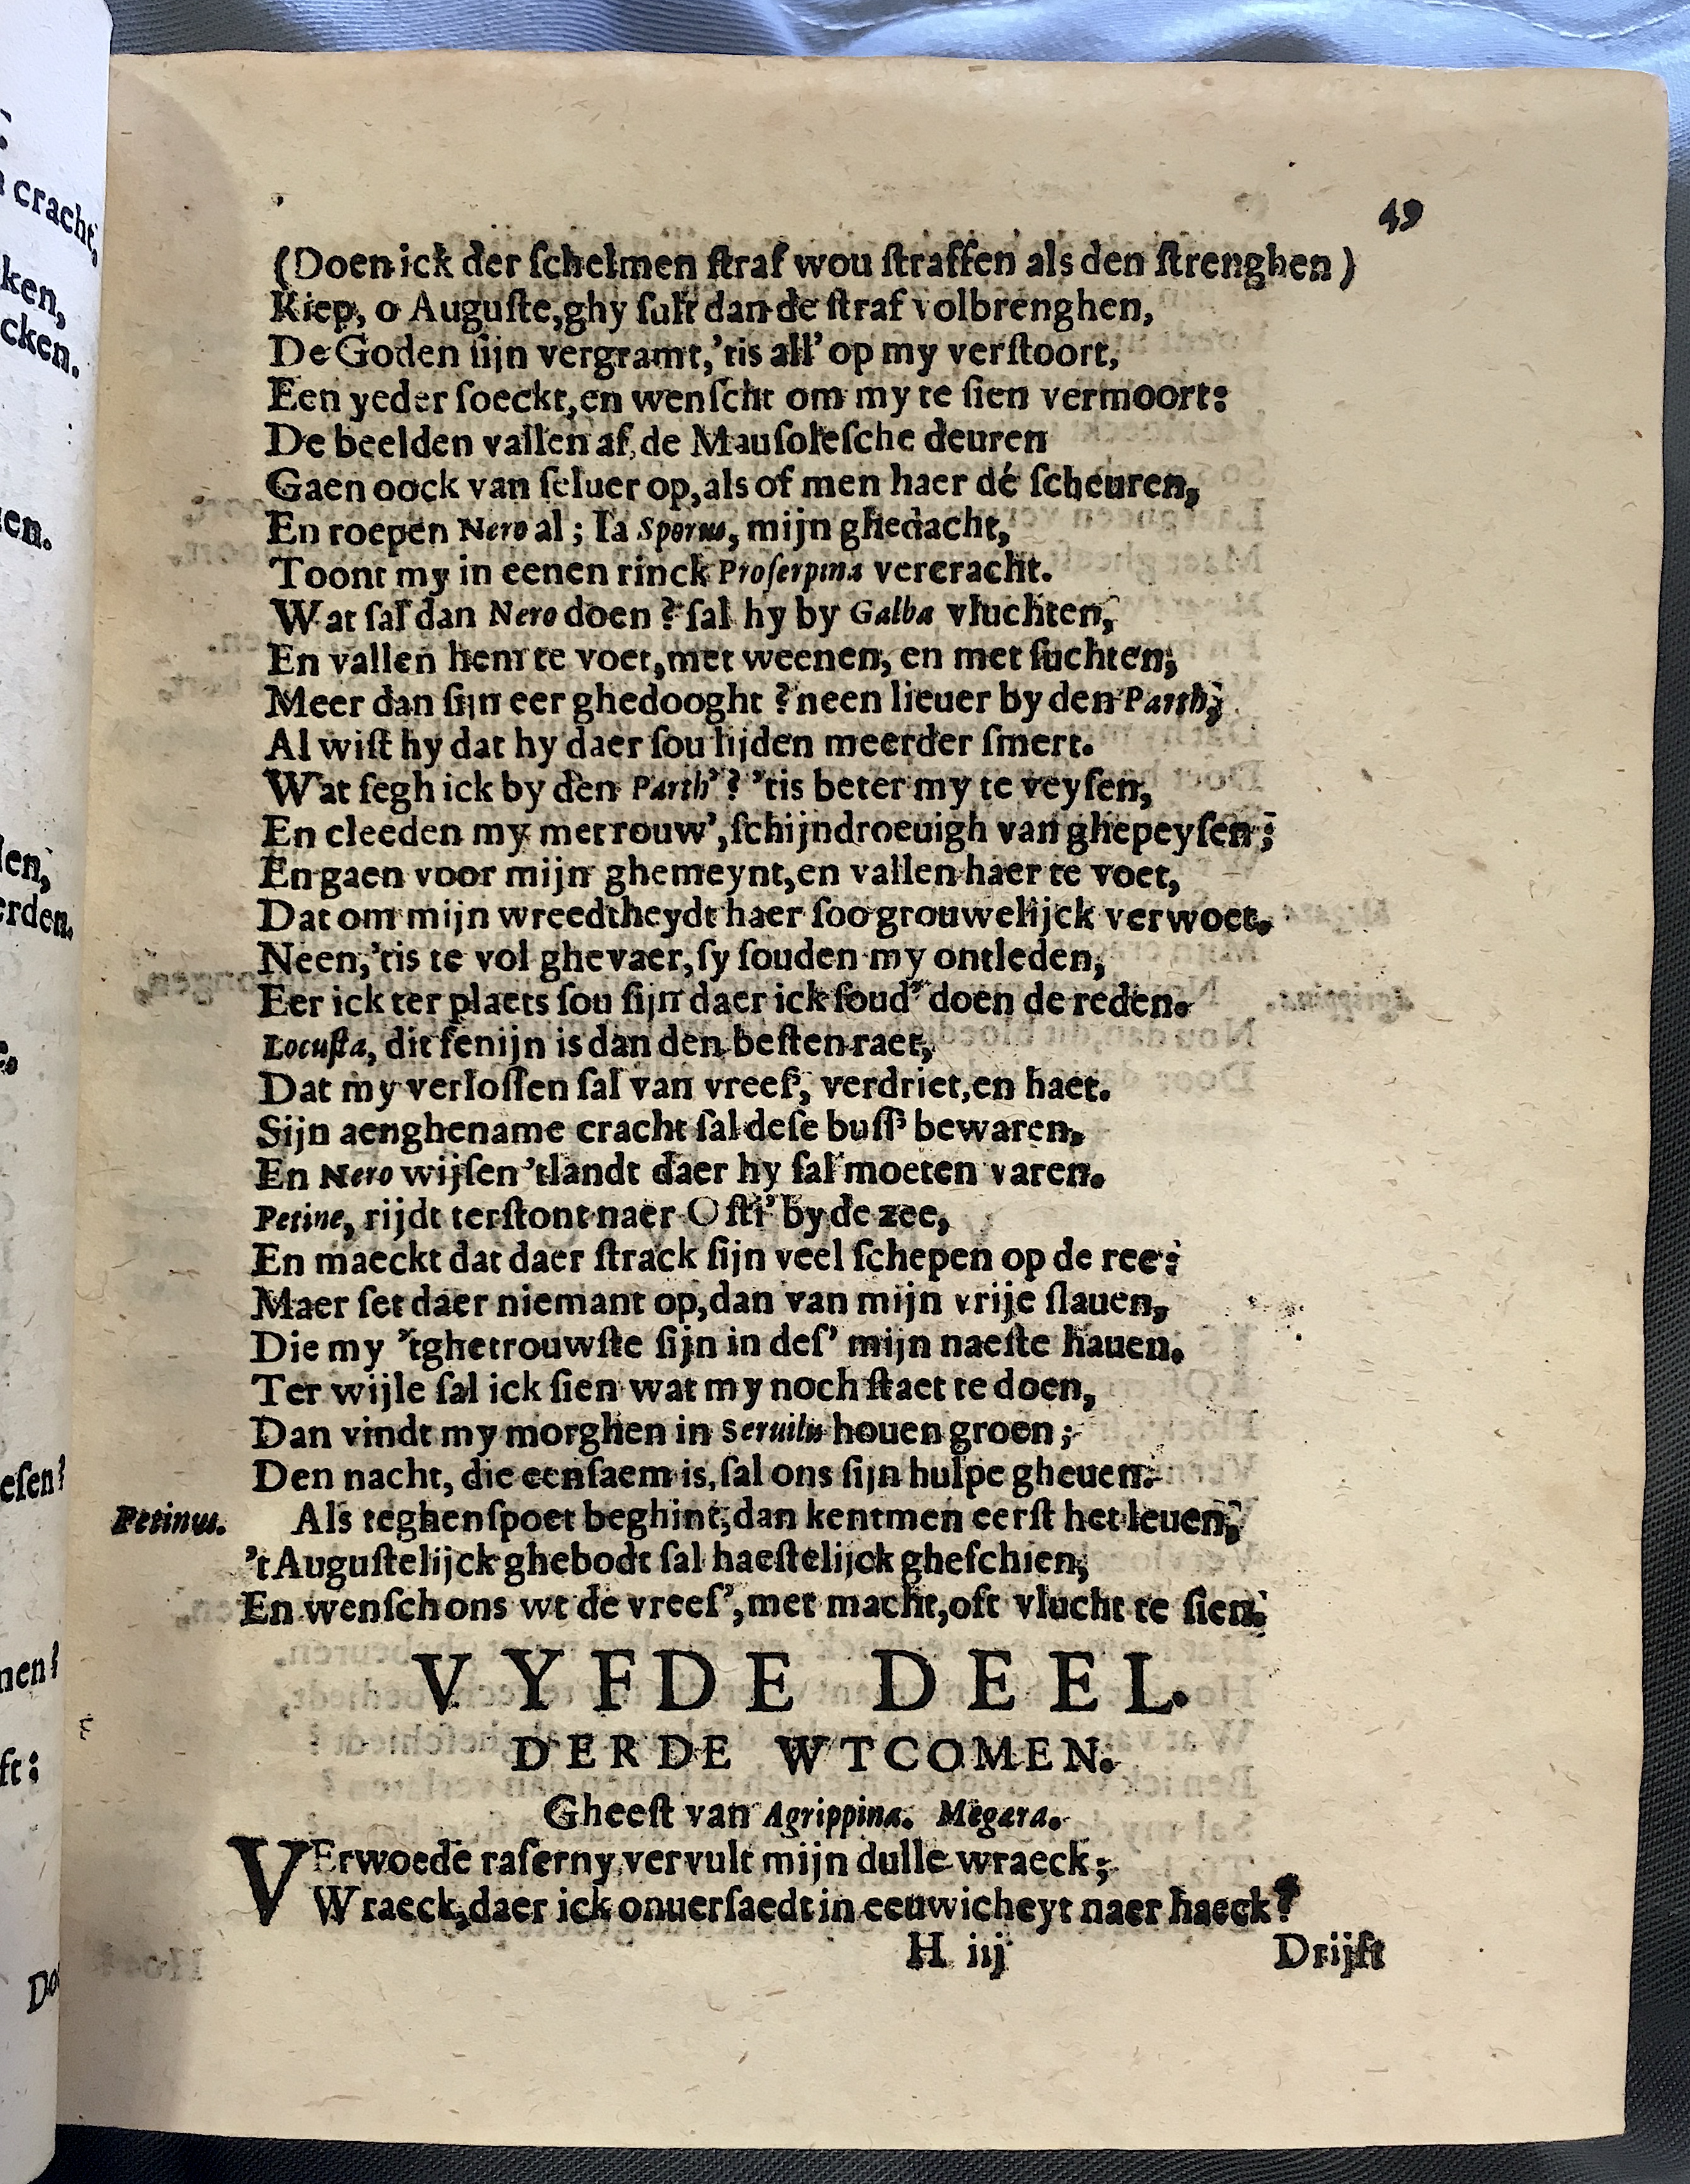 49
(Doen ick der ſchelmen ſtraf wou ſtraffen als den ſtrenghen)
Riep, o Auguſte, ghy ſult dan de ſtraf volbrenghen,
De Goden ſijn vergramt, 'tis all' op my verſtoort,
Een yeder ſoeckt, en wenſcht om my te ſien vermoort:
De beelden vallen af, de Mauſoleſche deuren
Gaen oock van ſeluer op, als of men haer dé ſcheuren,
En roepen Nero al; Ia Sporus, mijn ghedacht,
Toont my in eenen rinck Proſerpina vercracht.
Wat ſal dan Nero doen? ſal hy by Galba vluchten,
En vallen hem te voet, met weenen, en met ſuchten,
Meer dan ſijn eer ghedooght? neen lieuer by den Parth,
Al wiſt hy dat hy daer ſou lijden meerder ſmert.
Wat ſegh ick by den Parth'? 'tis beter my te veyſen,
En cleeden my met rouw', ſchijndroeuigh van ghepeyſen;
En gaen voor mijn ghemeynt, en vallen haer te voet,
Dat om mijn wreedtheydt haer ſoo grouwelijck verwoet.
Neen, 'tis te vol ghevaer, ſy ſouden my ontleden,
Eer ick ter plaets ſou ſijn daer ick ſoud' doen de reden.
Locuſta, dit fenijn is dan den beſten raet,
Dat my verloſſen ſal van vreeſ', verdriet, en haet.
Sijn aenghename cracht ſal deſe buſſ' bewaren,
En Nero wijſen 'tlandt daer hy ſal moeten varen.
Petine, rijdt terſtont naer Oſti' by de zee,
En maeckt dat daer ſtrack ſijn veel ſchepen op de ree:
Maer ſet daer niemant op, dan van mijn vrije ſlauen,
Die my 'tghetrouwſte ſijn in deſ' mijn naeſte hauen.
Ter wijle ſal ick ſien wat my noch ſtaet te doen,
Dan vindt my morghen in Seruilus houen groen;
Den nacht, die eenſaem is, ſal ons ſijn hulpe gheuen.
Petinus. Als teghenſpoet beghint, dan kentmen eerſt het leuen,
't Auguſtelijck ghebodt ſal haeſtelijck gheſchien,
En wenſch ons wt de vreeſ', met macht, oft vlucht te ſien.
VYFDE DEEL.
DERDE WTCOMEN.
Gheeſt van Agrippina. Megara.
VErwoede raſerny vervult mijn dulle wraeck;
Wraeck, daer ick onuerſaedt in eeuwicheyt naer haeck?
H iij Drijft